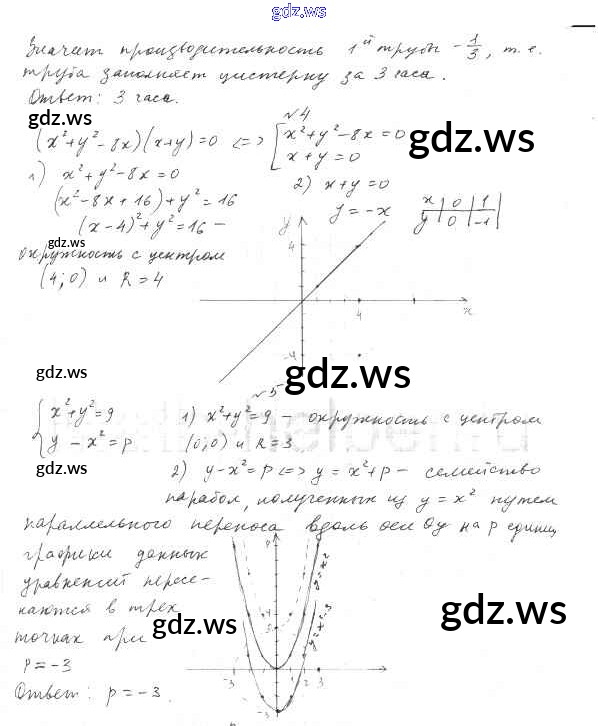 gdz.ws
Значит производительность 1ой трубы - 1/3, т.е.
труба заполняет цистерну за 3 часа.
Ответ: 3 часа.
gdz.ws
№4
(x²+y²-8x)(x+y)=0 <=> [x²+y²-8x=0
x+y=0
gdz.ws
1) x²+y²-8x=0
2) x+y=0
(x²-8x+16)+y²=16
y=-x
x 0 1
y 0 -1
(x-4)²+y²=16 -
gdz.ws
окружность с центром
(4;0) и R=4
y
4
4
x
-4
gdz.ws
gdz.ws
№5
{x²+y²=9
y-x²=p
1) x²+y²=9 - окружность с центром
(0;0) и R=3
gdz.ws
2) y-x²=p <=> y=x²+p - семейство
парабол, полученных из y=x² путем
параллельного переноса вдоль оси Oy на p единиц
графики данных
уравнений пересе-
каются в трех
точках при
p=-3
Ответ: p=-3.
gdz.ws
gdz.ws
gdz.ws
y=x²
y=x²-3
-3
1 2 3
-3